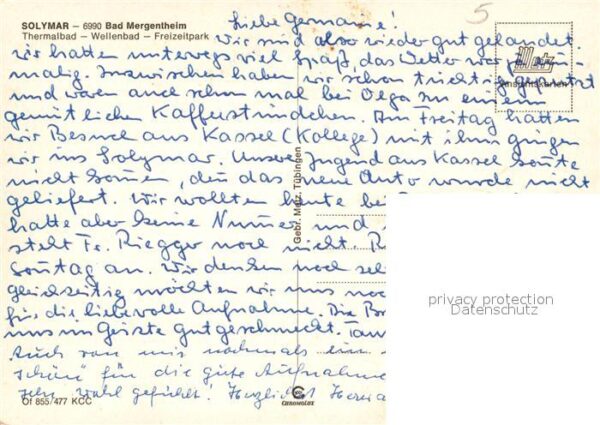 SOLYMAR – 6990 Bad Mergentheim
Thermalbad – Wellenbad – Freizeitpark
5
Metz
Ansichtskarten
Liebe Germaine!
Wir sind also wieder gut gelandet.
wir hatten unterwegs viel Spaß, das Wetter war
malig. Inzwischen haben wir schon tüchtig geputzt
und waren auch schon mal bei Olga zu einem
gemütlichen Kaffeestündchen. Am Freitag hatten
wir Besuch aus Kassel (Kollege) mit ihm gingen
wir ins Solymar. Unsere Jugend aus Kassel konnte
nicht kommen, denn das neue Auto wurde nicht
geliefert. Wir wollten heute bei
hatte aber keine Nummer und
steht Fr. Riegger noch nicht.
Sonntag an. Wir denken noch
gleichzeitig möchten wir uns
für die liebevolle Aufnahme. Die
uns im Geiste gut geschmeckt.
Auch von mir nochmals
schön für die gute Aufnahme
sehr wohl gefühlt! Herzlichst
Gebr. Metz, Tübingen
privacy protection
Datenschutz
Of 855/477 KCC
CHROMOLUX